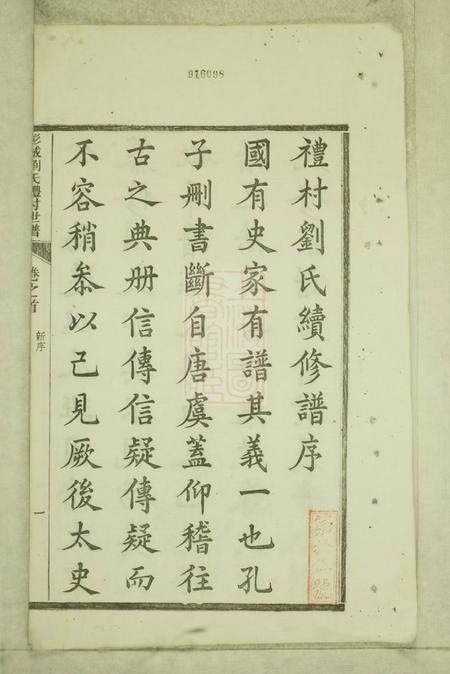 916098
禮村劉氏續修譜序
國有史家有譜其義一也孔
子刪書斷自唐虞蓋仰稽往
古之典册信傳信疑傳疑而
不容稍叅以己見厥後太史
彭城劉氏禮村世譜
卷之首
新序
一